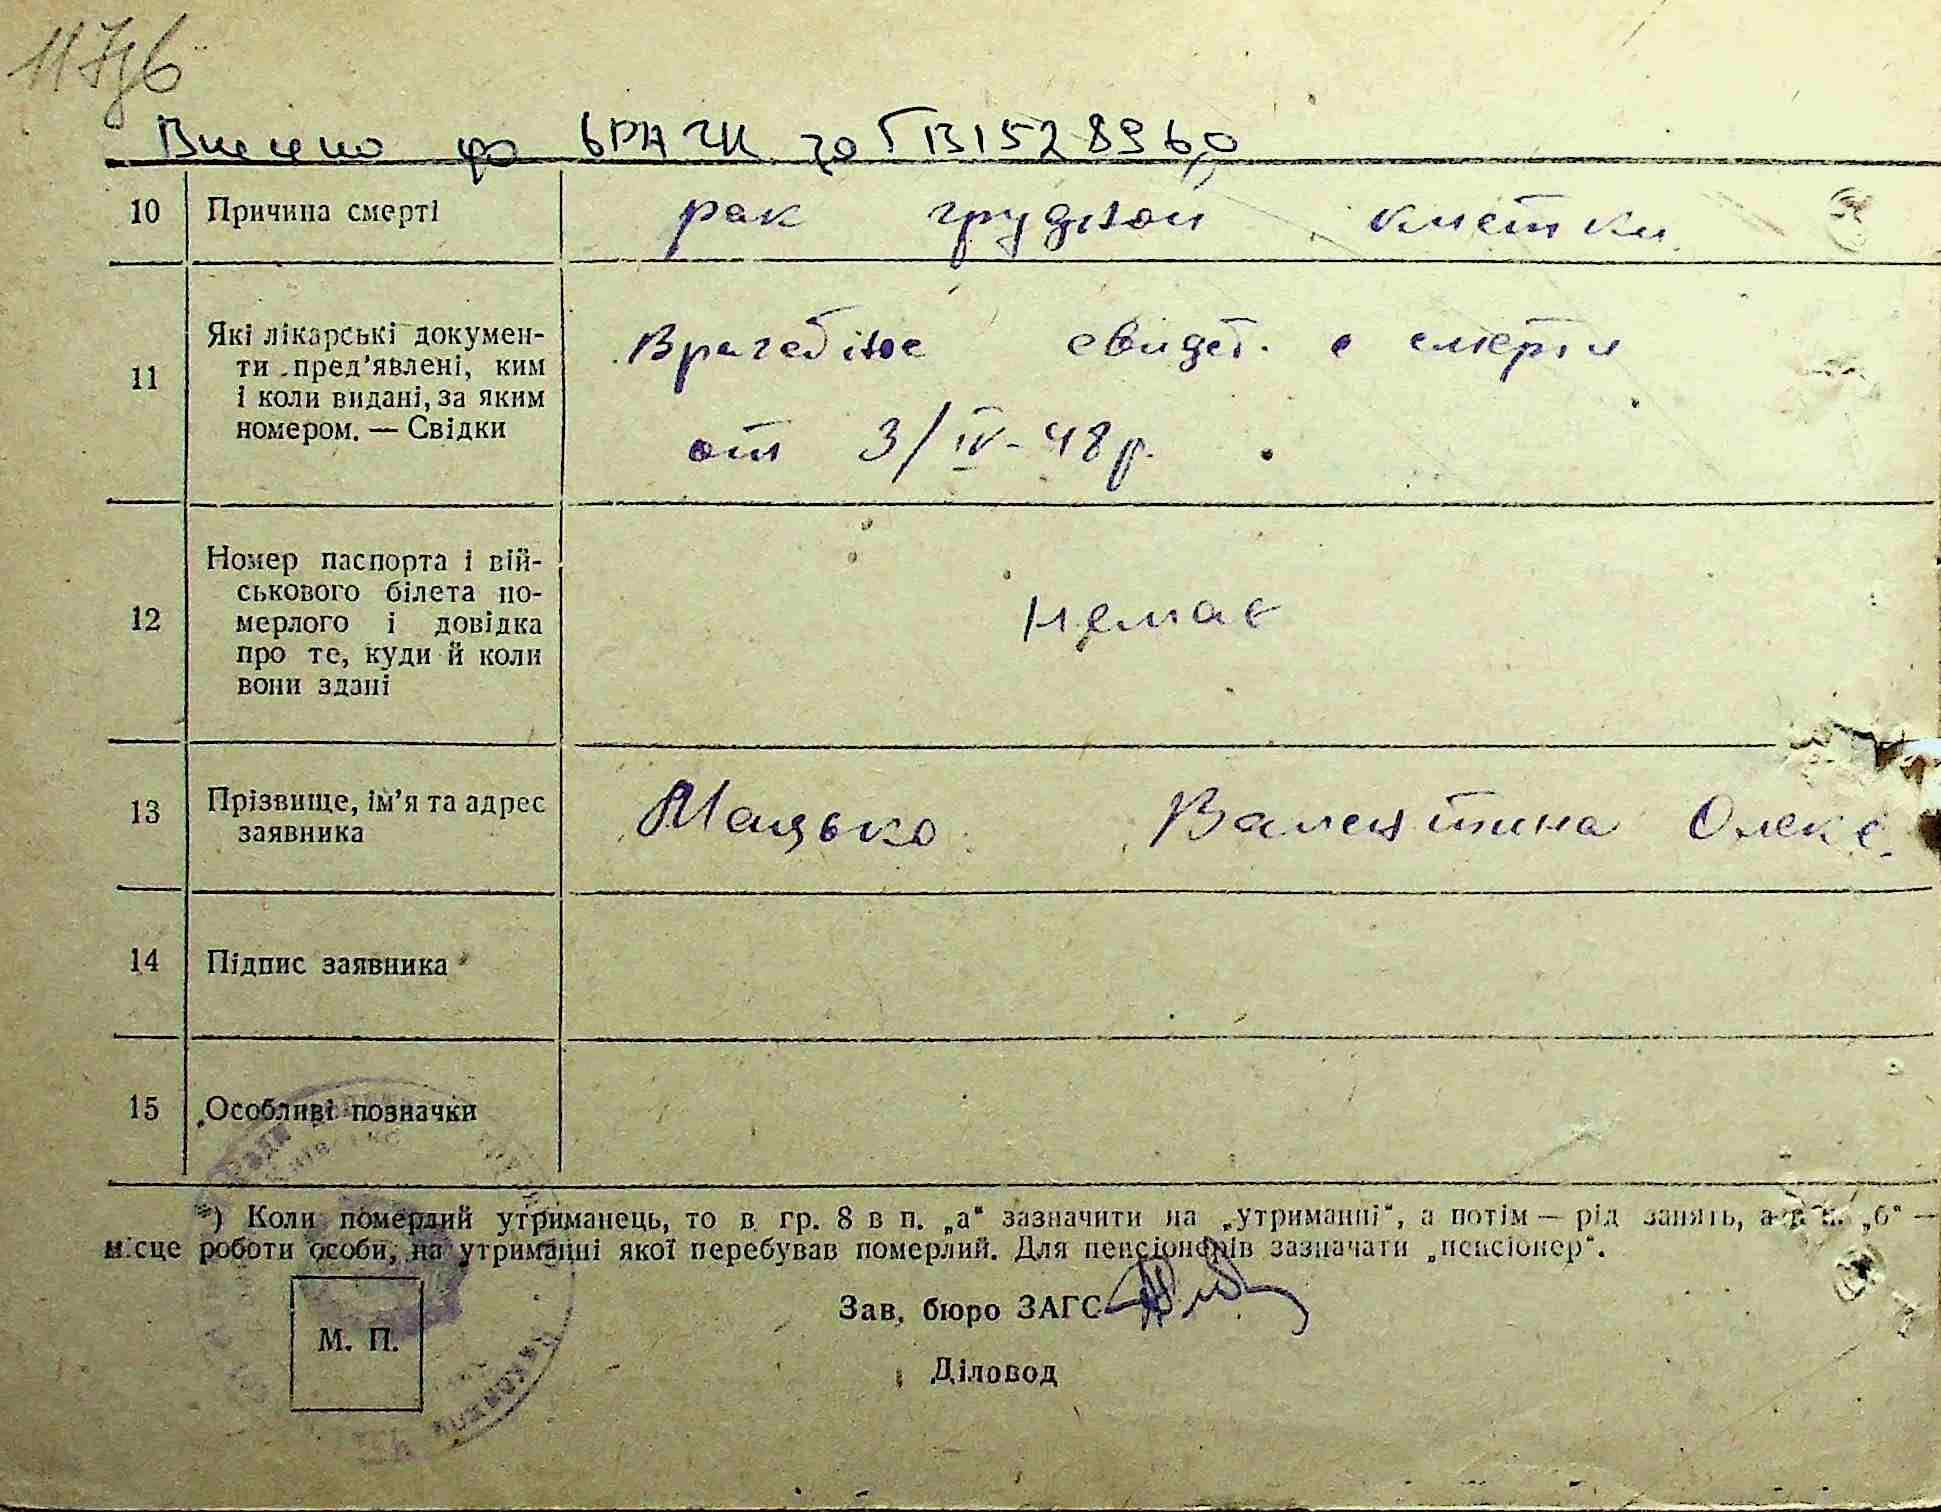 Внесено до
10 Причина смерті рак грудной клетки
11 Які лікарські докумен-
ти пред’явлені, ким
і коли видані, за яким
номером. — Свідки
Врачебное свидет. о смерти
от 3/IV-48р.
12 Номер паспорта і вій-
ськового білета по-
мерлого і довідка
про те, куди й коли
вони здані
немає
13 Прізвище, ім’я та адрес
заявника
Мацько Валентина Олекс.
14 Підпис заявника
15 Особливі позначки
*) Коли померлий утриманець, то в гр. 8 в п. „а“ зазначити на „утриманні“, а потім — рід занять, а в п. „б“ —
місце роботи особи, на утриманні якої перебував померлий. Для пенсіонерів зазначати „пенсіонер“.
Зав. бюро ЗАГС
М. П.
Діловод